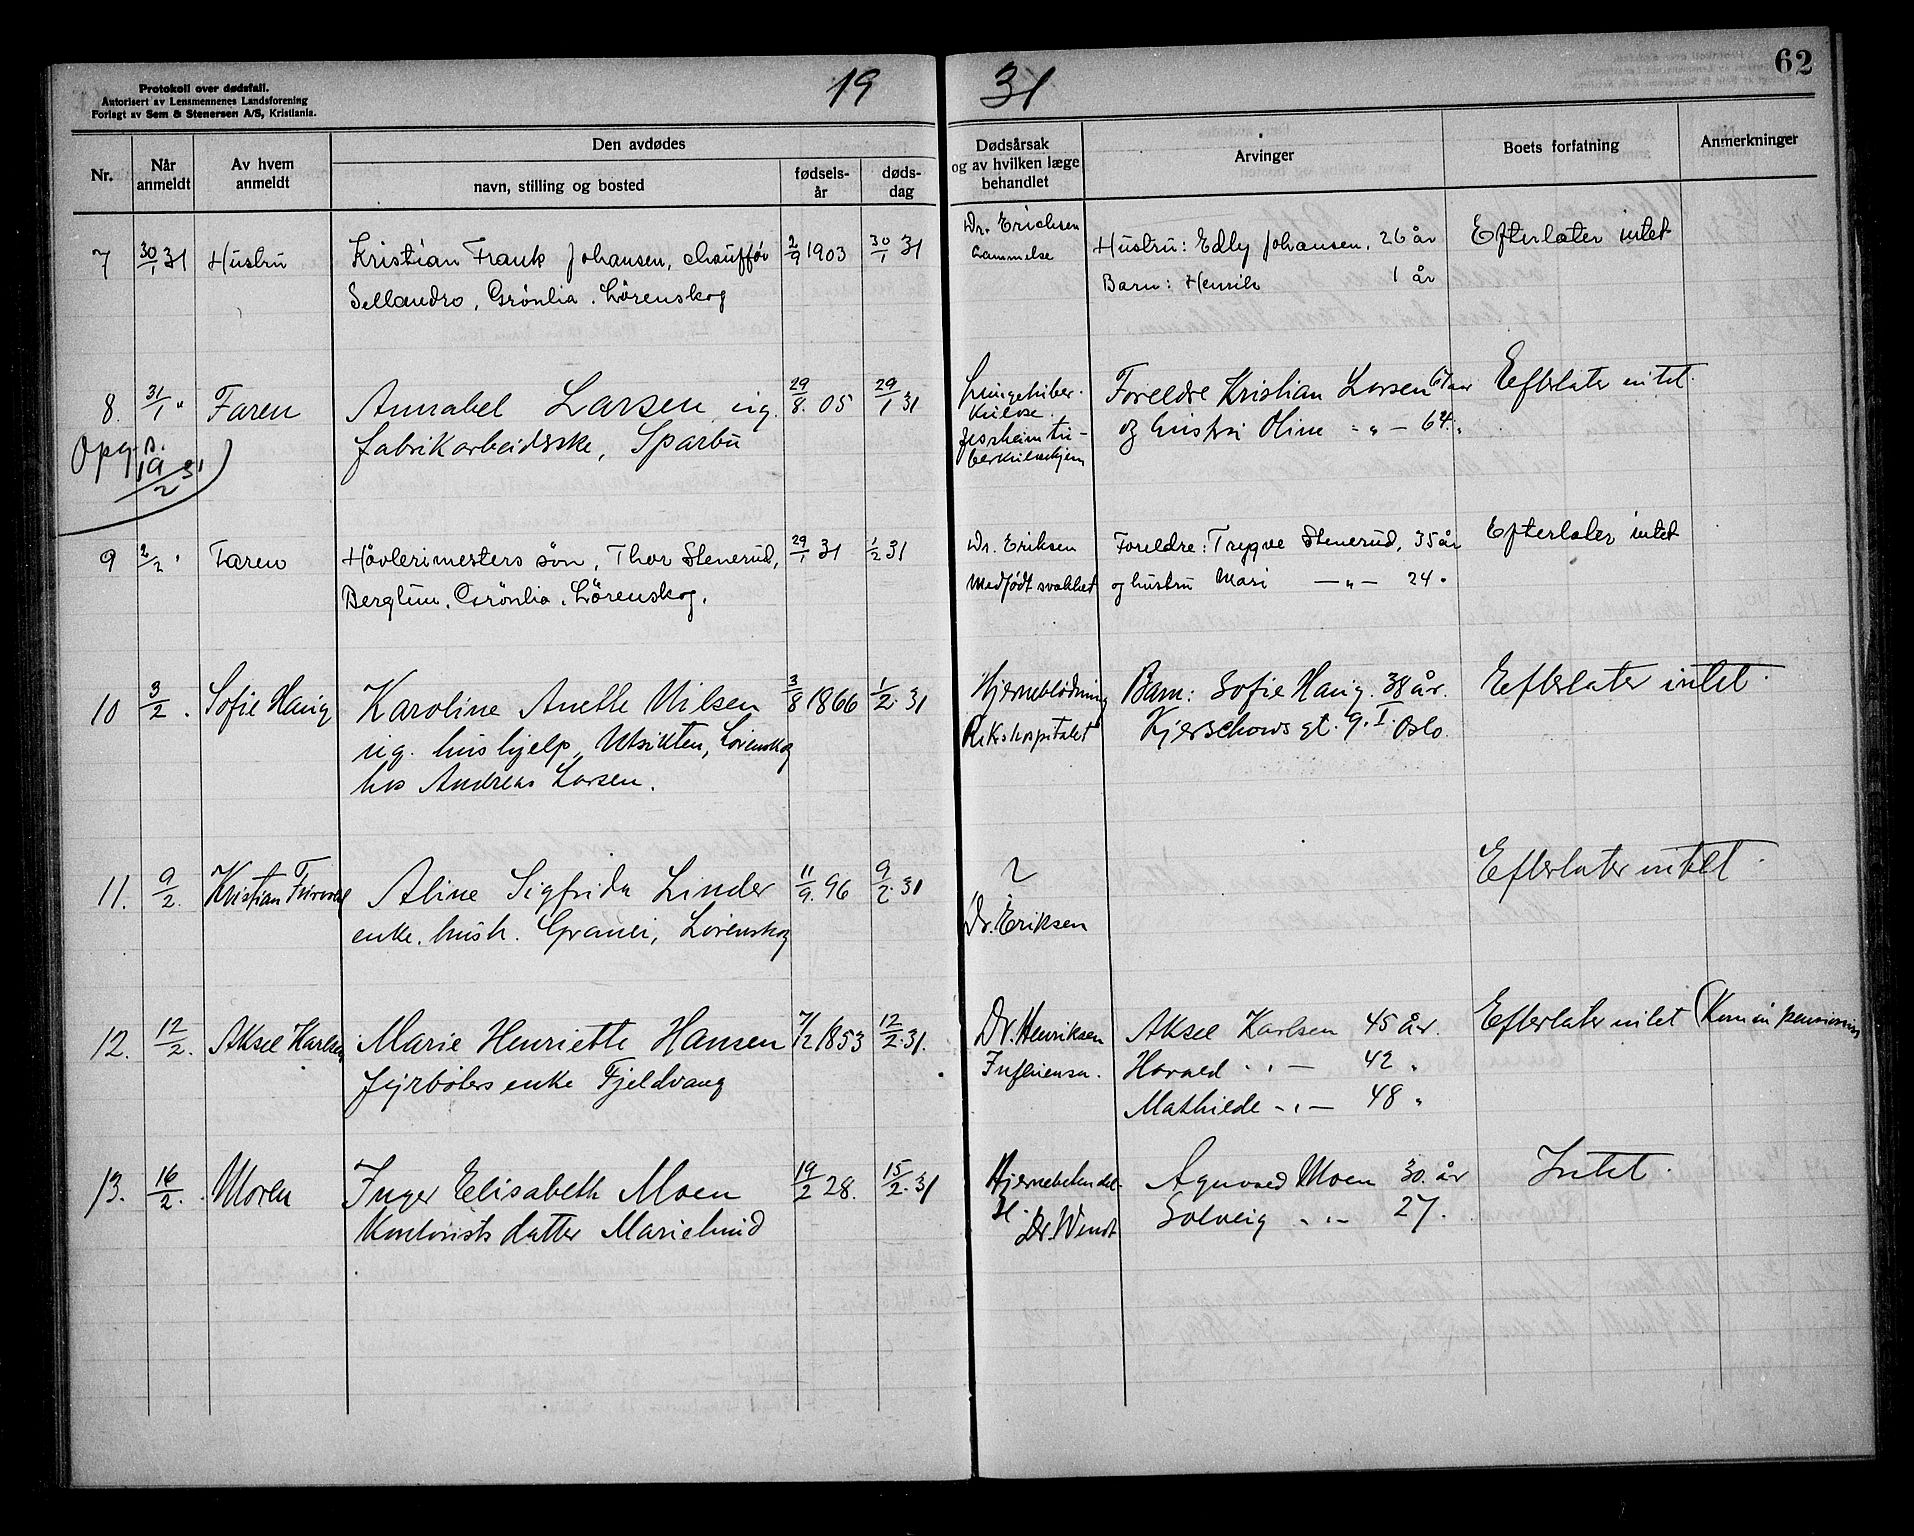 Protokoll over dødsfall.
Autorisert av Lensmennenes Landsforening
Forlagt av Sem & Stenersen A/S, Kristiania.
19 31
62
Nr.
Når anmeldt
Av hvem anmeldt
Den avdødes
navn, stilling og bosted
fødselsår
dødsdag
Dødsårsak og av hvilken læge behandlet
Arvinger
Boets forfatning
Anmerkninger
7 30/1 31 Hustru Kristian Frank Johansen, chauffør 2/9 1903 30/1 31 Dr. Erichsen Hustru: Edly Johansen, 26 år Efterlater intet
Sellandro, Grönlia. Lörenskog Lammelse Barn: Henrik 1 år
8. 31/1 " Faren Annabel Larsen ug. 29/8. 05 29/1 31 Lungetuber- Foreldre Kristian Larsen 67 aar Efterlater intet.
fabrikarbeiderske, Sparbu kulose. og hustru Oline -"- 64 "
Jessheim tu-
berkulosehjem
Opg. s.
19/2 31
9 2/2 " Faren Hövlerimesters sön, Thor Stenerud, 29/1 31 1/2 31 Dr. Eriksen Foreldre: Trygve Stenerud, 35 år Efterlater intet
Berglun, Grönlia. Lörenskog. Medfödt svakhet og hustru Mari -"- 24 "
10 3/2. Sofie Haug Karoline Anette Nilsen 3/8 1866 1/2. 31 Hjerneblødning Barn: Sofie Haug. 38 år. Efterlater intet.
ug. hushjelp, Utsikten, Lørenskog Rikshospitalet Kjerschows gt. 9. I. Oslo.
hos Andreas Larsen.
11. 9/2. Kristian Aline Sigfrida Linder 11/9. 96 9/2. 31 ? Efterlater intet.
enke. hush. Lørenskog Dr. Eriksen
12. 12/2. Aksel Karlsen Marie Henriette Hansen 7/2 1853 12/2. 31. Dr. Henriksen Aksel Karlsen 45 år. Efterlater intet
Fyrbøters enke Fjeldvang Influensa. Harald -"- 42 "
Mathilde -"- 48 "
13. 16/2. Moren Inger Elisabeth Moen 19/2 28. 15/2. 31 Agnvald Moen 30. år Intet.
Kontorists datter Marielund Dr. Wendt Solveig -"- 27.